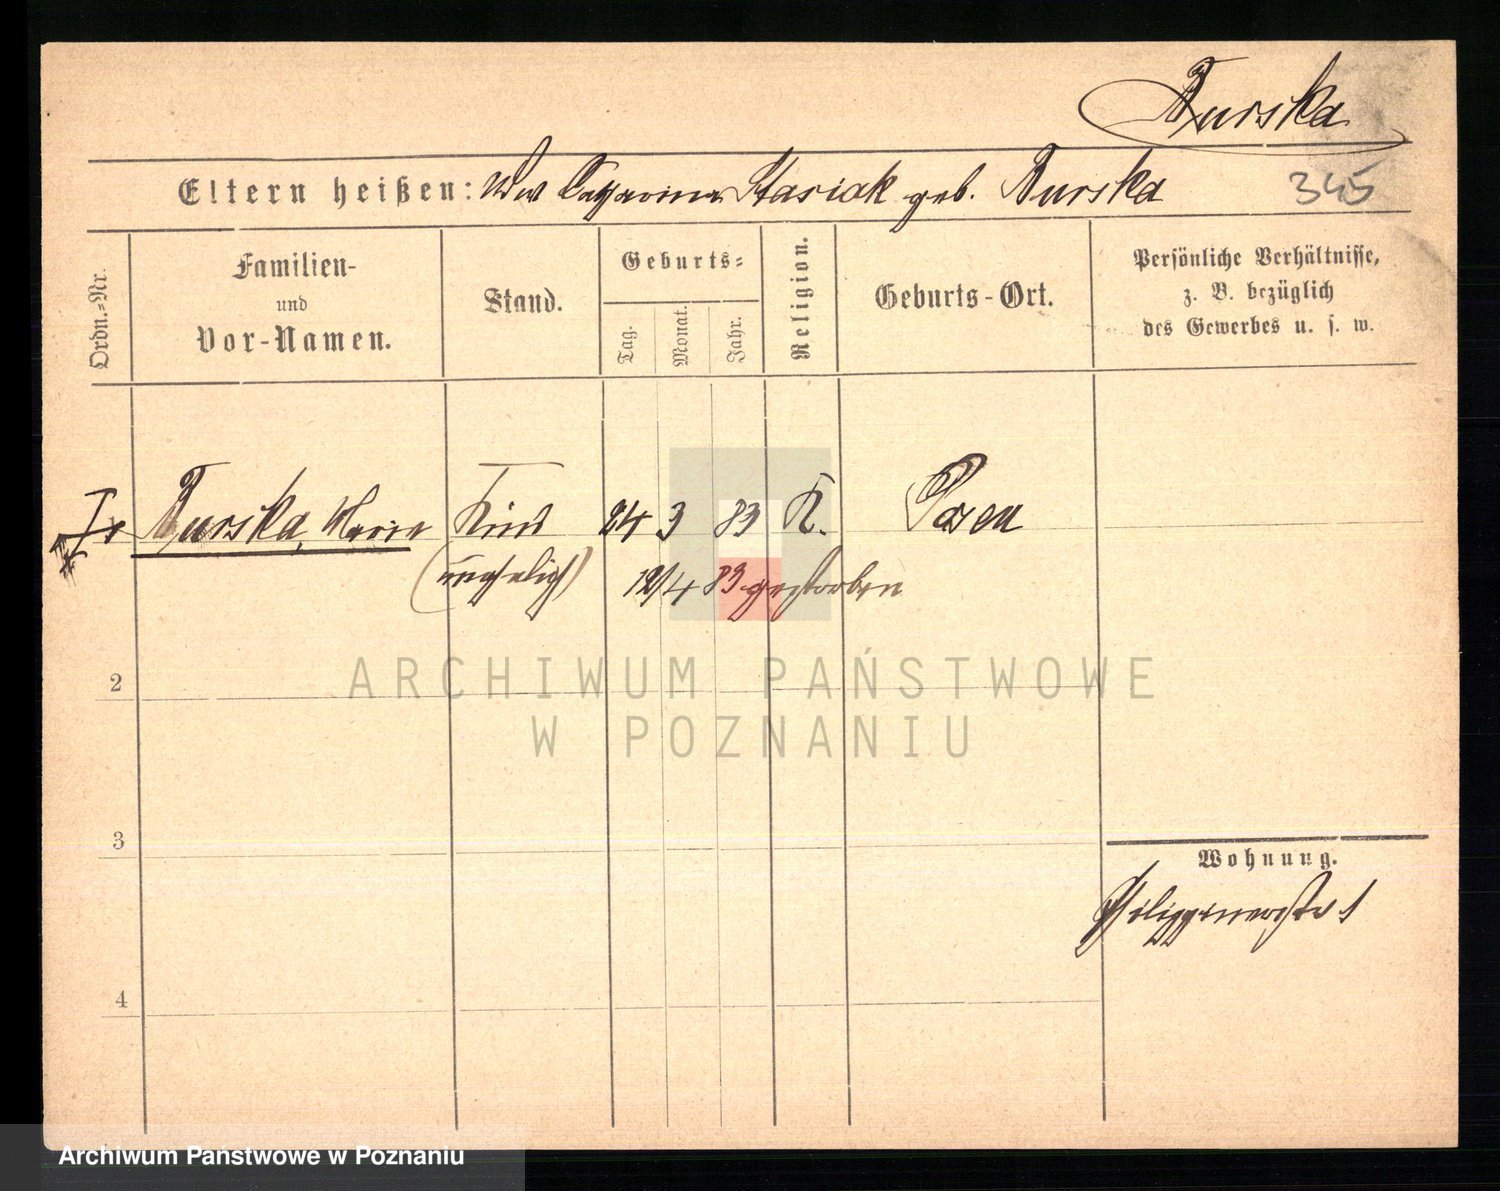 Turska
Eltern heißen: Wwe Catharina Stasiak geb. Turska
345
Ordn.-Nr.
Familien-
und
Vor-Namen.
Stand.
Geburts-
Tag.
Monat.
Jahr.
Religion.
Geburts-Ort.
Persönliche Verhältnisse,
z. B. bezüglich
des Gewerbes u. s. w.
Turska, Marie Kind 24 3 83 K. Posen
(unehelich) 12/4 83 gestorben
ARCHIWUM PAŃSTWOWE
W POZNANIU
2
3
Wohnung.
Philippinerstr 1
4
Archiwum Państwowe w Poznaniu